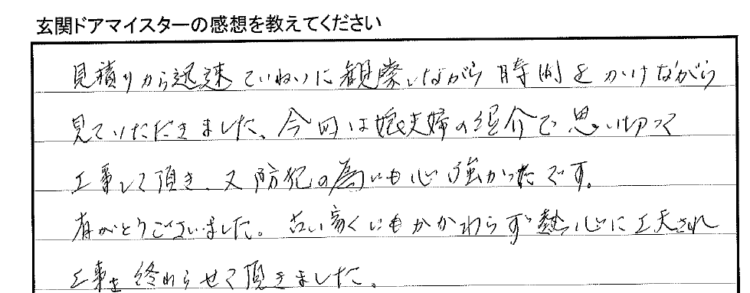 玄関ドアマイスターの感想を教えてください
見積りから迅速ていねいに観察しながら時間をかけながら
見ていただきました、今回は娘夫婦の紹介で思い切って
工事して頂き、又防犯の為にも心強かったです。
有がとうございました。古い家にもかかわらず熱心に工夫され
工事を終わらせて頂きました。